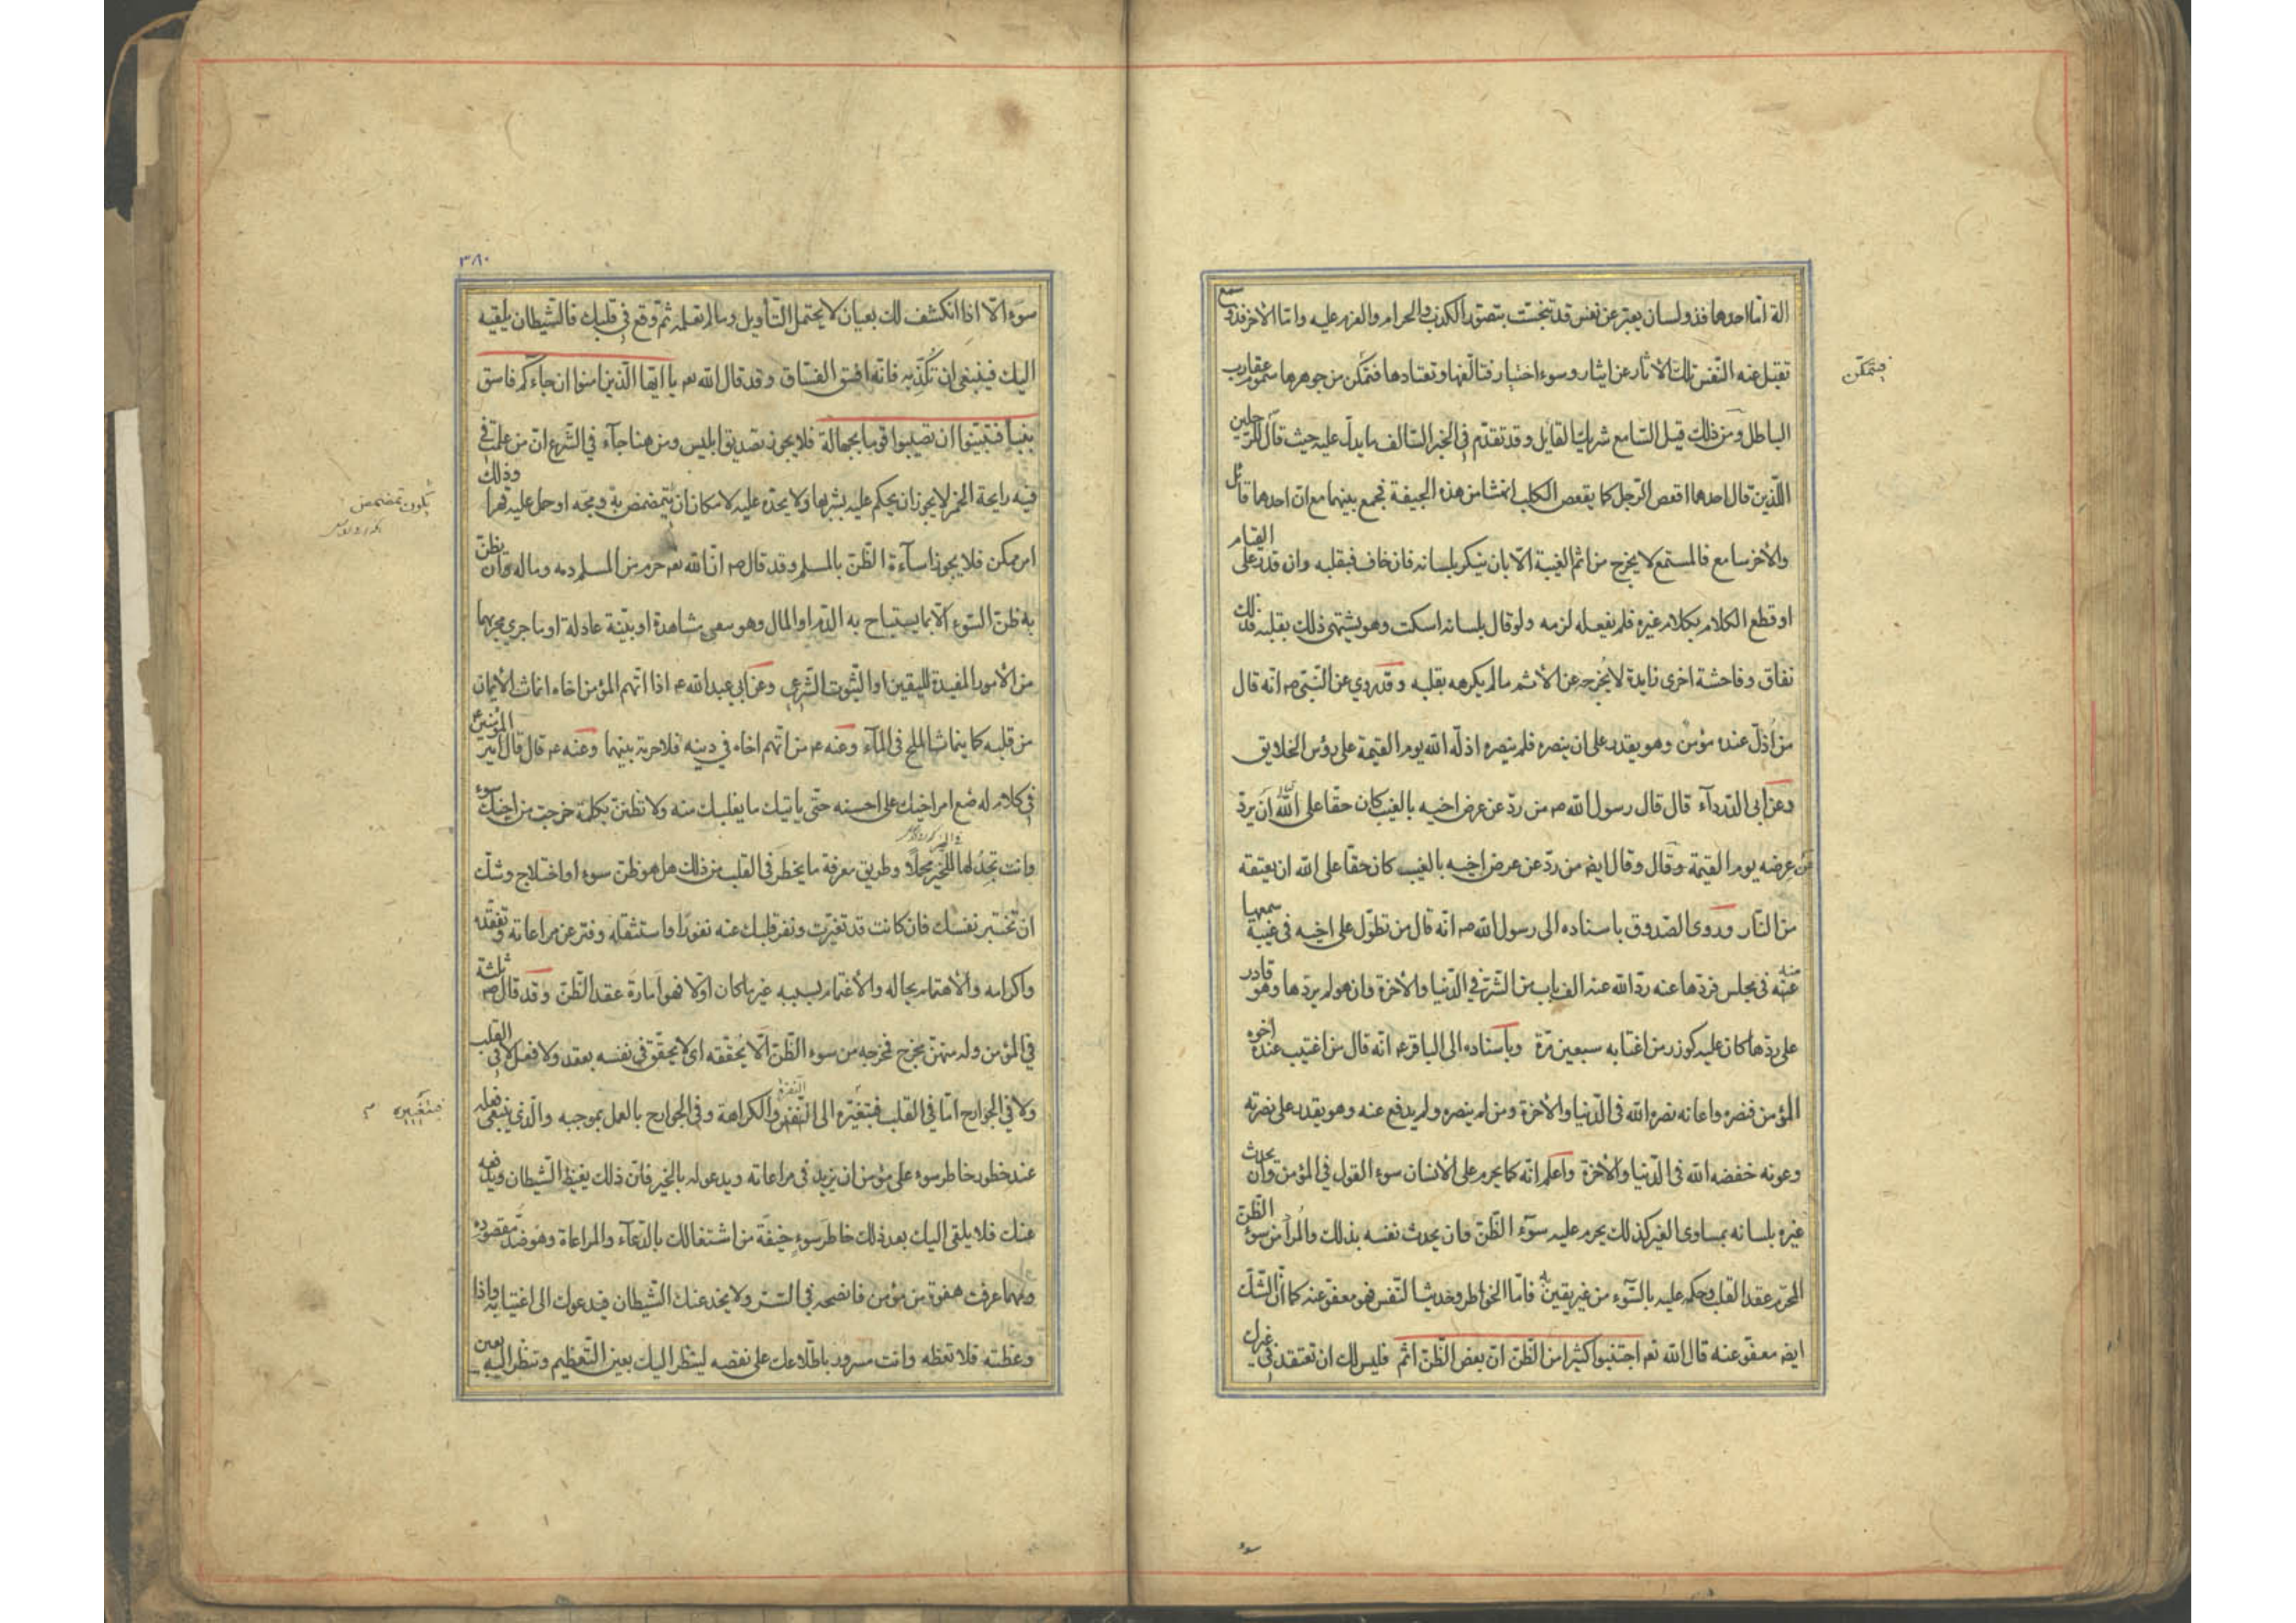 الة امّا احدهما فذو لسان يعبّر عن نفس قد تنجّست بتصوّر الكذب والحرام والعزم عليه وامّا الاخر فذو سمع
تقبل عنه النّفس تلك الاثار عن ايثار وسوء اختيار فتألفها وتعتادها فتمكّن من جوهرها سموم عقارب
فيتمكّن
الباطل ومن ذلك قيل السّامع شريك القايل وقد تقدّم في الخبر السّالف ما يدلّ عليه حيث قال للرّجلين
اللّذين قال احدهما اقعص الرّجل كما يقعص الكلب انهشا من هذه الجيفة فجمع بينهما مع انّ احدهما قائل
والاخر سامع فالمستمع لا يخرج من اثم الغيبة الّا بان ينكر بلسانه فان خاف فبقلبه وان قدر على القيام
او قطع الكلام بكلام غيره فلم يفعله لزمه ولو قال بلسانه اسكت وهو يشتهي ذلك بقلبه فذلك
نفاق وفاحشة اخرى زايدة لا يخرجه عن الاثم ما لم يكرهه بقلبه وقد روي عن النّبي ص انّه قال
من اذلّ عنده مؤمن وهو يقدر على ان ينصره فلم ينصره اذلّه الله يوم القيمة على رؤس الخلايق
وعن ابى الدّرداء قال قال رسول الله ص من ردّ عن عرض اخيه بالغيب كان حقّا على الله ان يردّ
عن عرضه يوم القيمة وقال وقال ايض من ردّ عن عرض اخيه بالغيب كان حقّا على الله ان يعتقه
من النّار وروى الصّدوق باسناده الى رسول الله ص انّه قال من تطوّل على اخيه في غيبة سمعها
عنه منه فى مجلس فردّها عنه ردّ الله عنه الف باب من الشّرّ في الدّنيا والاخرة وان هو لم يردّها وهو قادر
على ردّها كان عليه كوزر من اغتابه سبعين مرّة وباسناده الى الباقر ع انّه قال من اغتيب عنده اخوه
المؤمن فنصره واعانه نصره الله فى الدّنيا والاخرة ومن لم ينصره ولم يدفع عنه وهو يقدر على نصرته
وعونه خفضه الله فى الدّنيا والاخرة واعلم انّه كما يحرم على الانسان سوء القول في المؤمن وان يحدث
غيره بلسانه بمساوى الغير كذلك يحرم عليه سوء الظّنّ وان يحدث نفسه بذلك والمراد من سوء الظّنّ
المحرّم عقد القلب وحكمه عليه بالسّوء من غير يقين به فامّا الخواطر وحديث النّفس فهو معفوّ عنه كما انّ الشّكّ
ايض معفوّ عنه قال الله تعم اجتنبوا كثيرا من الظّنّ انّ بعض الظّنّ اثم فليس لك ان تعتقد في غيرك
سوء
٣٨٠
سوء الّا اذا انكشف لك بعيان لا يحتمل التّأويل وما لم تعلمه ثمّ وقع في قلبك فالشّيطان يلقيه
اليك فينبغي ان تكذّبه فانّه افسق الفسّاق وقد قال الله تعم يا ايّها الّذين امنوا ان جاءكم فاسق
بنبأ فتبيّنوا ان تصيبوا قوما بجهالة فلا يجوز تصديق ابليس ومن هنا جاء في الشّرع انّ من علمت في
فيه رايحة الخمر لا يجوز ان يحكم عليه بشربها ولا يحدّه عليه لامكان ان يتمضمض به ومجّه او حمل عليه قهرا وذلك
يكون تمضمض
امر ممكن فلا يجوز اساءة الظّنّ بالمسلم وقد قال ص انّ الله تعم حرّم من المسلم دمه وماله وان يظنّ
به ظنّ السّوء الّا بما يستباح به الدّم او المال وهو سعى مشاهدة او بيّنة عادلة او ما جرى مجريهما
من الامور المفيدة لليقين او الثّبوت الشّرعي وعن ابي عبد الله ع اذا اتّهم المؤمن اخاه انماث الايمان
من قلبه كما ينماث الملح فى الماء وعنه ع من اتّهم اخاه في دينه فلا حرمة بينهما وعنه ع قال قال امير المؤمنين ع
في كلام له ضع امر اخيك على احسنه حتّى ياتيك ما يغلبك منه ولا تظنّنّ بكلمة خرجت من اخيك سوء
وانت تجد لها للخير محملا وطريق معرفة ما يخطر فى القلب من ذلك هل هو ظنّ سوء او اختلاج وشكّ
ان تختبر نفسك فان كانت قد تغيّرت ونفر قلبك عنه نفورا واستثقله وفتر عن مراعاته وتفقّده
واكرامه والاهتمام بحاله والاغتمام بسببه غير ما كان اوّلا فهو امارة عقد الظّنّ وقد قال ص ثلثة
في المؤمن وله منهنّ مخرج فمخرجه من سوء الظّنّ الّا يحقّقه اى لا يحقّق فى نفسه بعقد ولا فعل لا في القلب
ولا في الجوارح امّا في القلب فبتغيّره الى النّفس النفرة والكراهة وفي الجوارح بالعمل بموجبه والّذي ينبغي فعله
فبتغيره
عند خطور خاطر سوء على مؤمن ان يزيد فى مراعاته ويدعو له بالخير فانّ ذلك يغيظ الشّيطان ويدفعه
عنك فلا يلقي اليك بعد ذلك خاطر سوء خيفة من اشتغالك بالدّعاء والمراعاة وهو ضدّ مقصوده
ومهما عرفت هفوة من مؤمن فانصحه في السّرّ ولا يخدعنك الشّيطان فيدعوك الى اغتيابه واذا
وعظته فلا تعظه وانت مسرور باطّلاعك على نقصه لينظر اليك بعين التّعظيم وتنظر اليه بعين